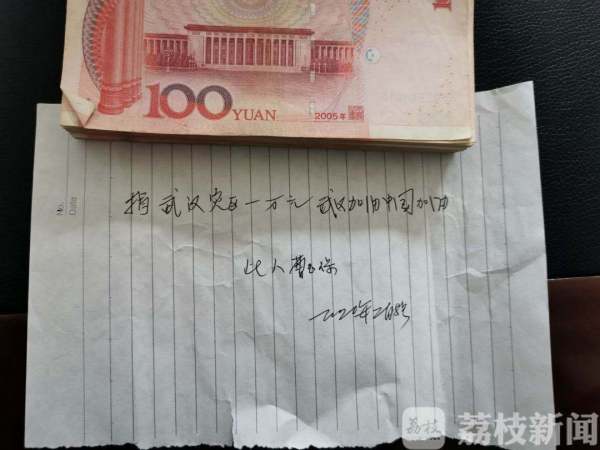 100 YUAN 2005年
No.
Date
捐武汉灾区一万元武汉加油中国加油
此人曹
2020年2月
荔枝 荔枝新闻